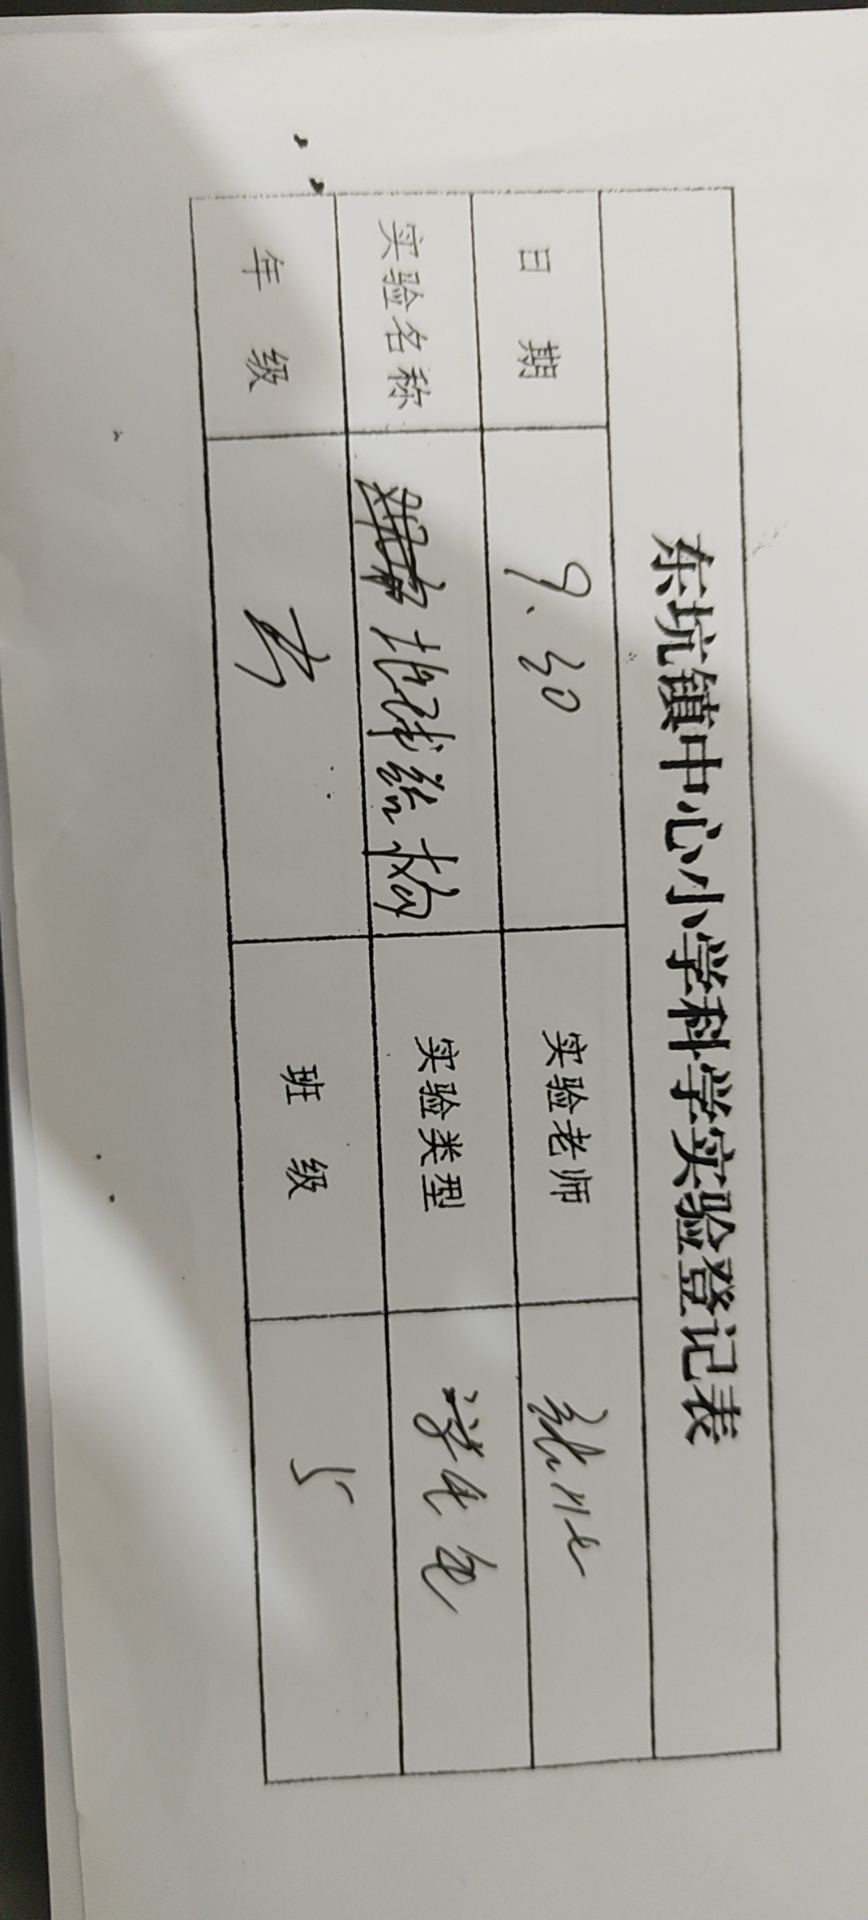 东坑镇中心小学科学实验登记表
日 期 9.30 实验老师
实验名称 地球结构 实验类型
年 级 五 班 级 5